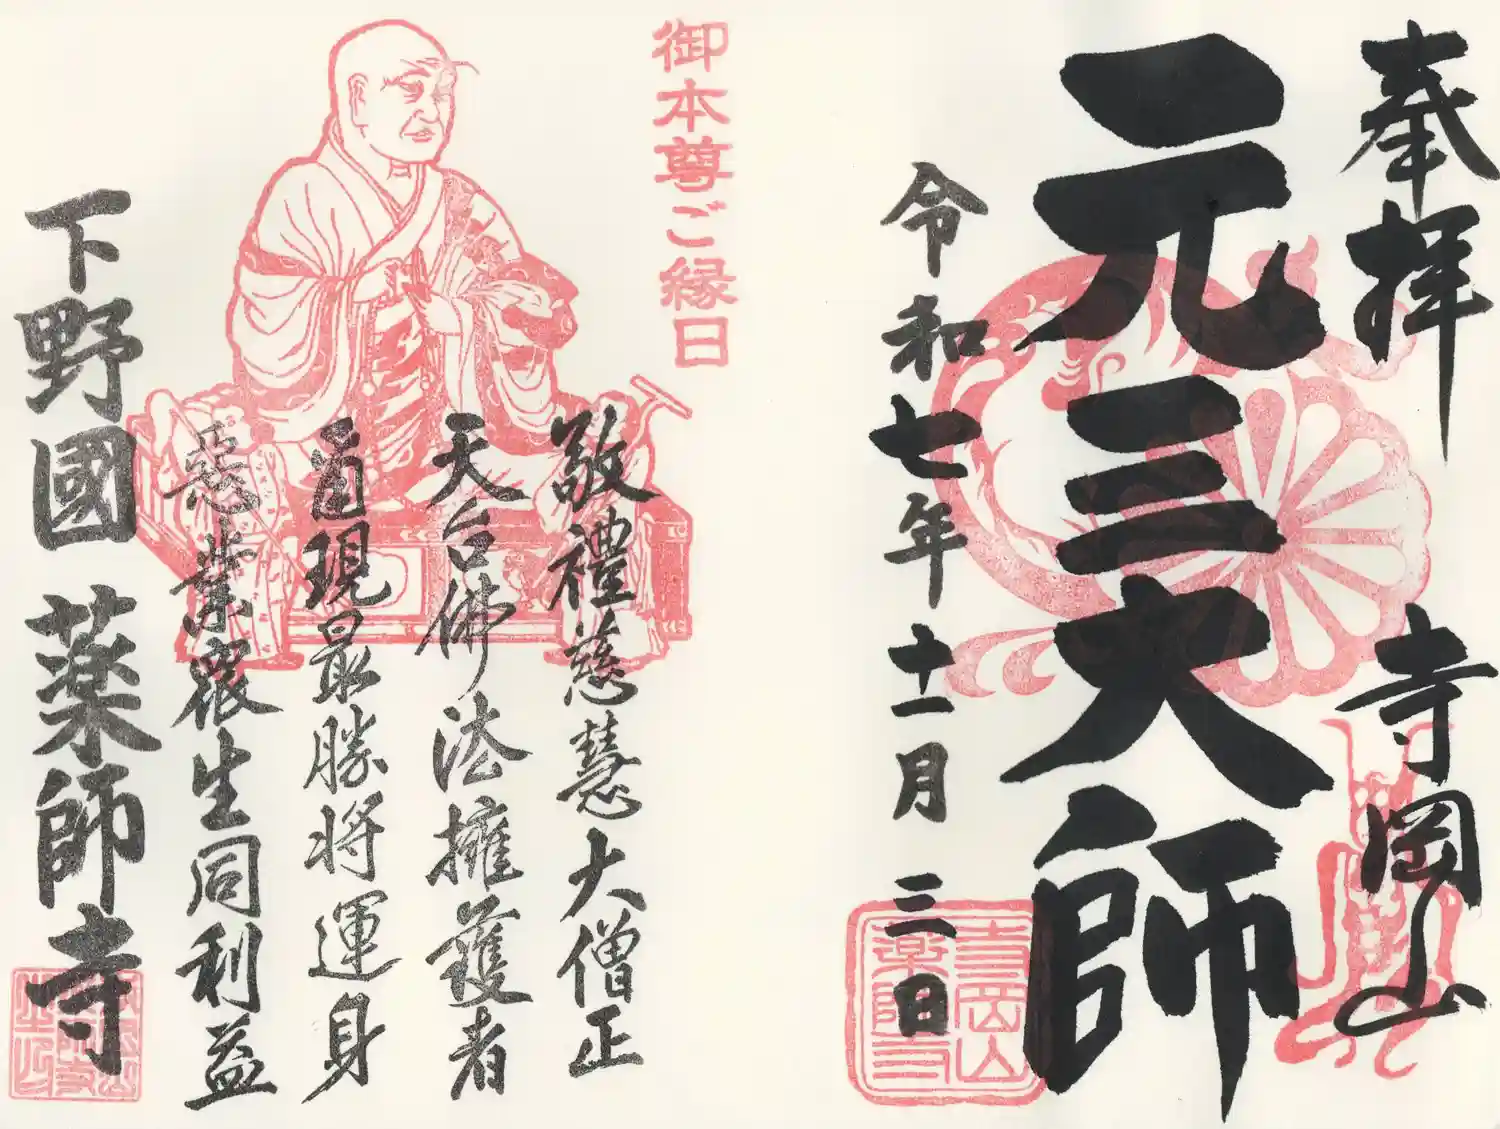 奉拝 寺岡山
元三大師
令和七年十一月三日
寺岡山
薬師寺
御本尊ご縁日
敬禮慈慧大僧正
天台佛法擁護者
現最勝将運身
惡業衆生同利益
下野國 薬師寺